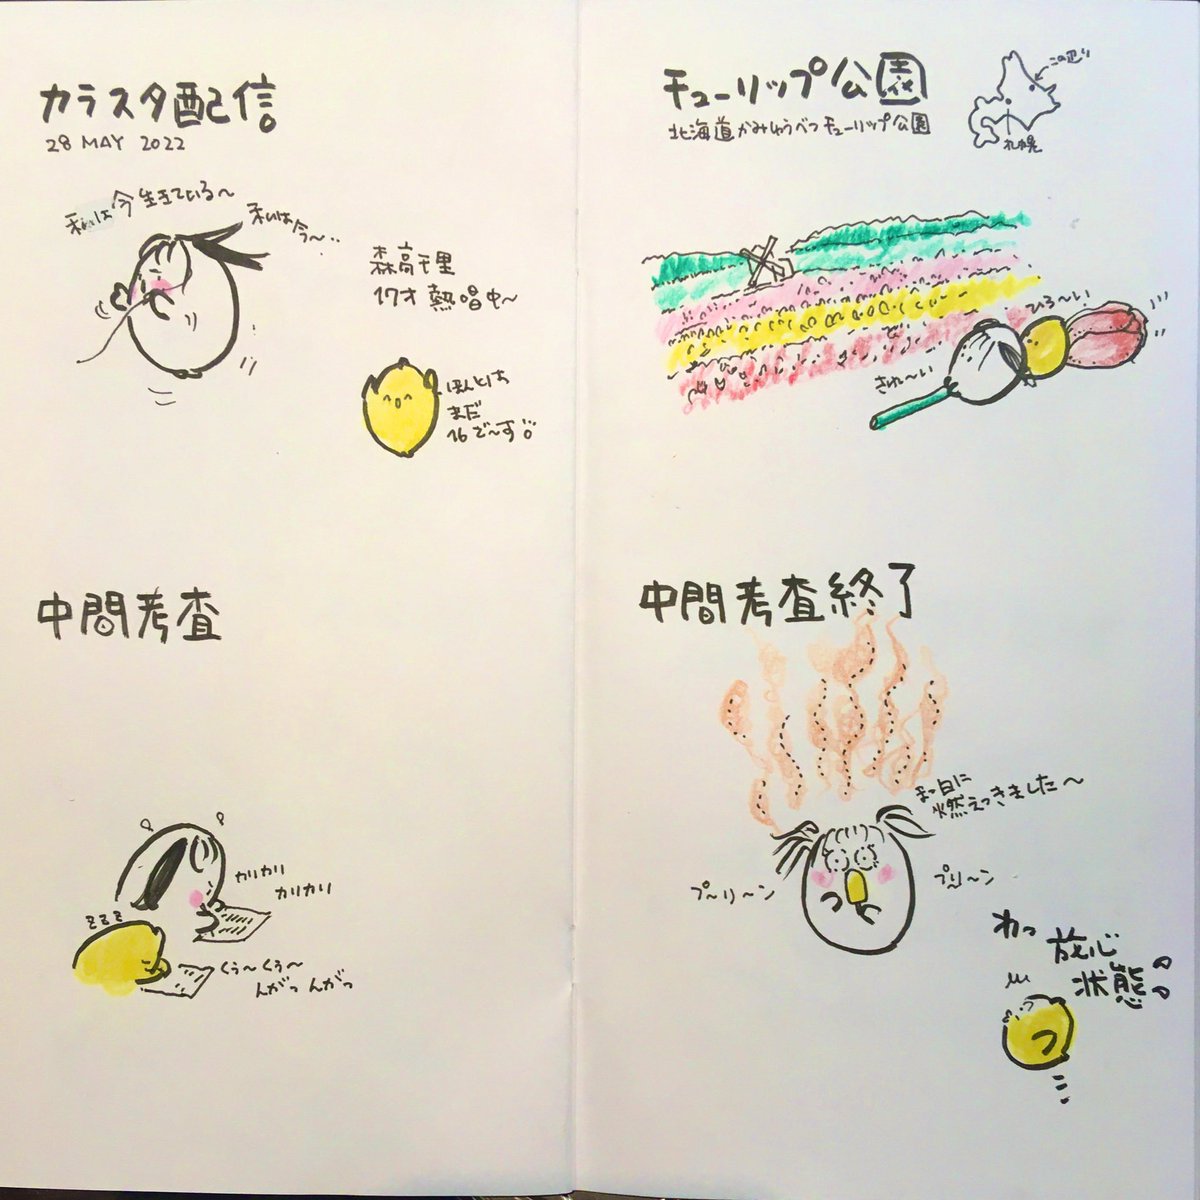 カラスタ配信
28 MAY 2022
私は今生きている〜
私は今〜‥
森高千里
17才 熱唱中〜
ほんとは
まだ
16で〜す
チューリップ公園
北海道かみゆうべつチューリップ公園
この辺り
札幌
ひろ〜い
きれ〜い
中間考査
カリカリ
カリカリ
くぅ〜くぅ〜
んがっ んがっ
中間考査終了
まっ白に
燃えつきました〜
プ〜リ〜ン
プ〜リ〜ン
わっ
放心
状態